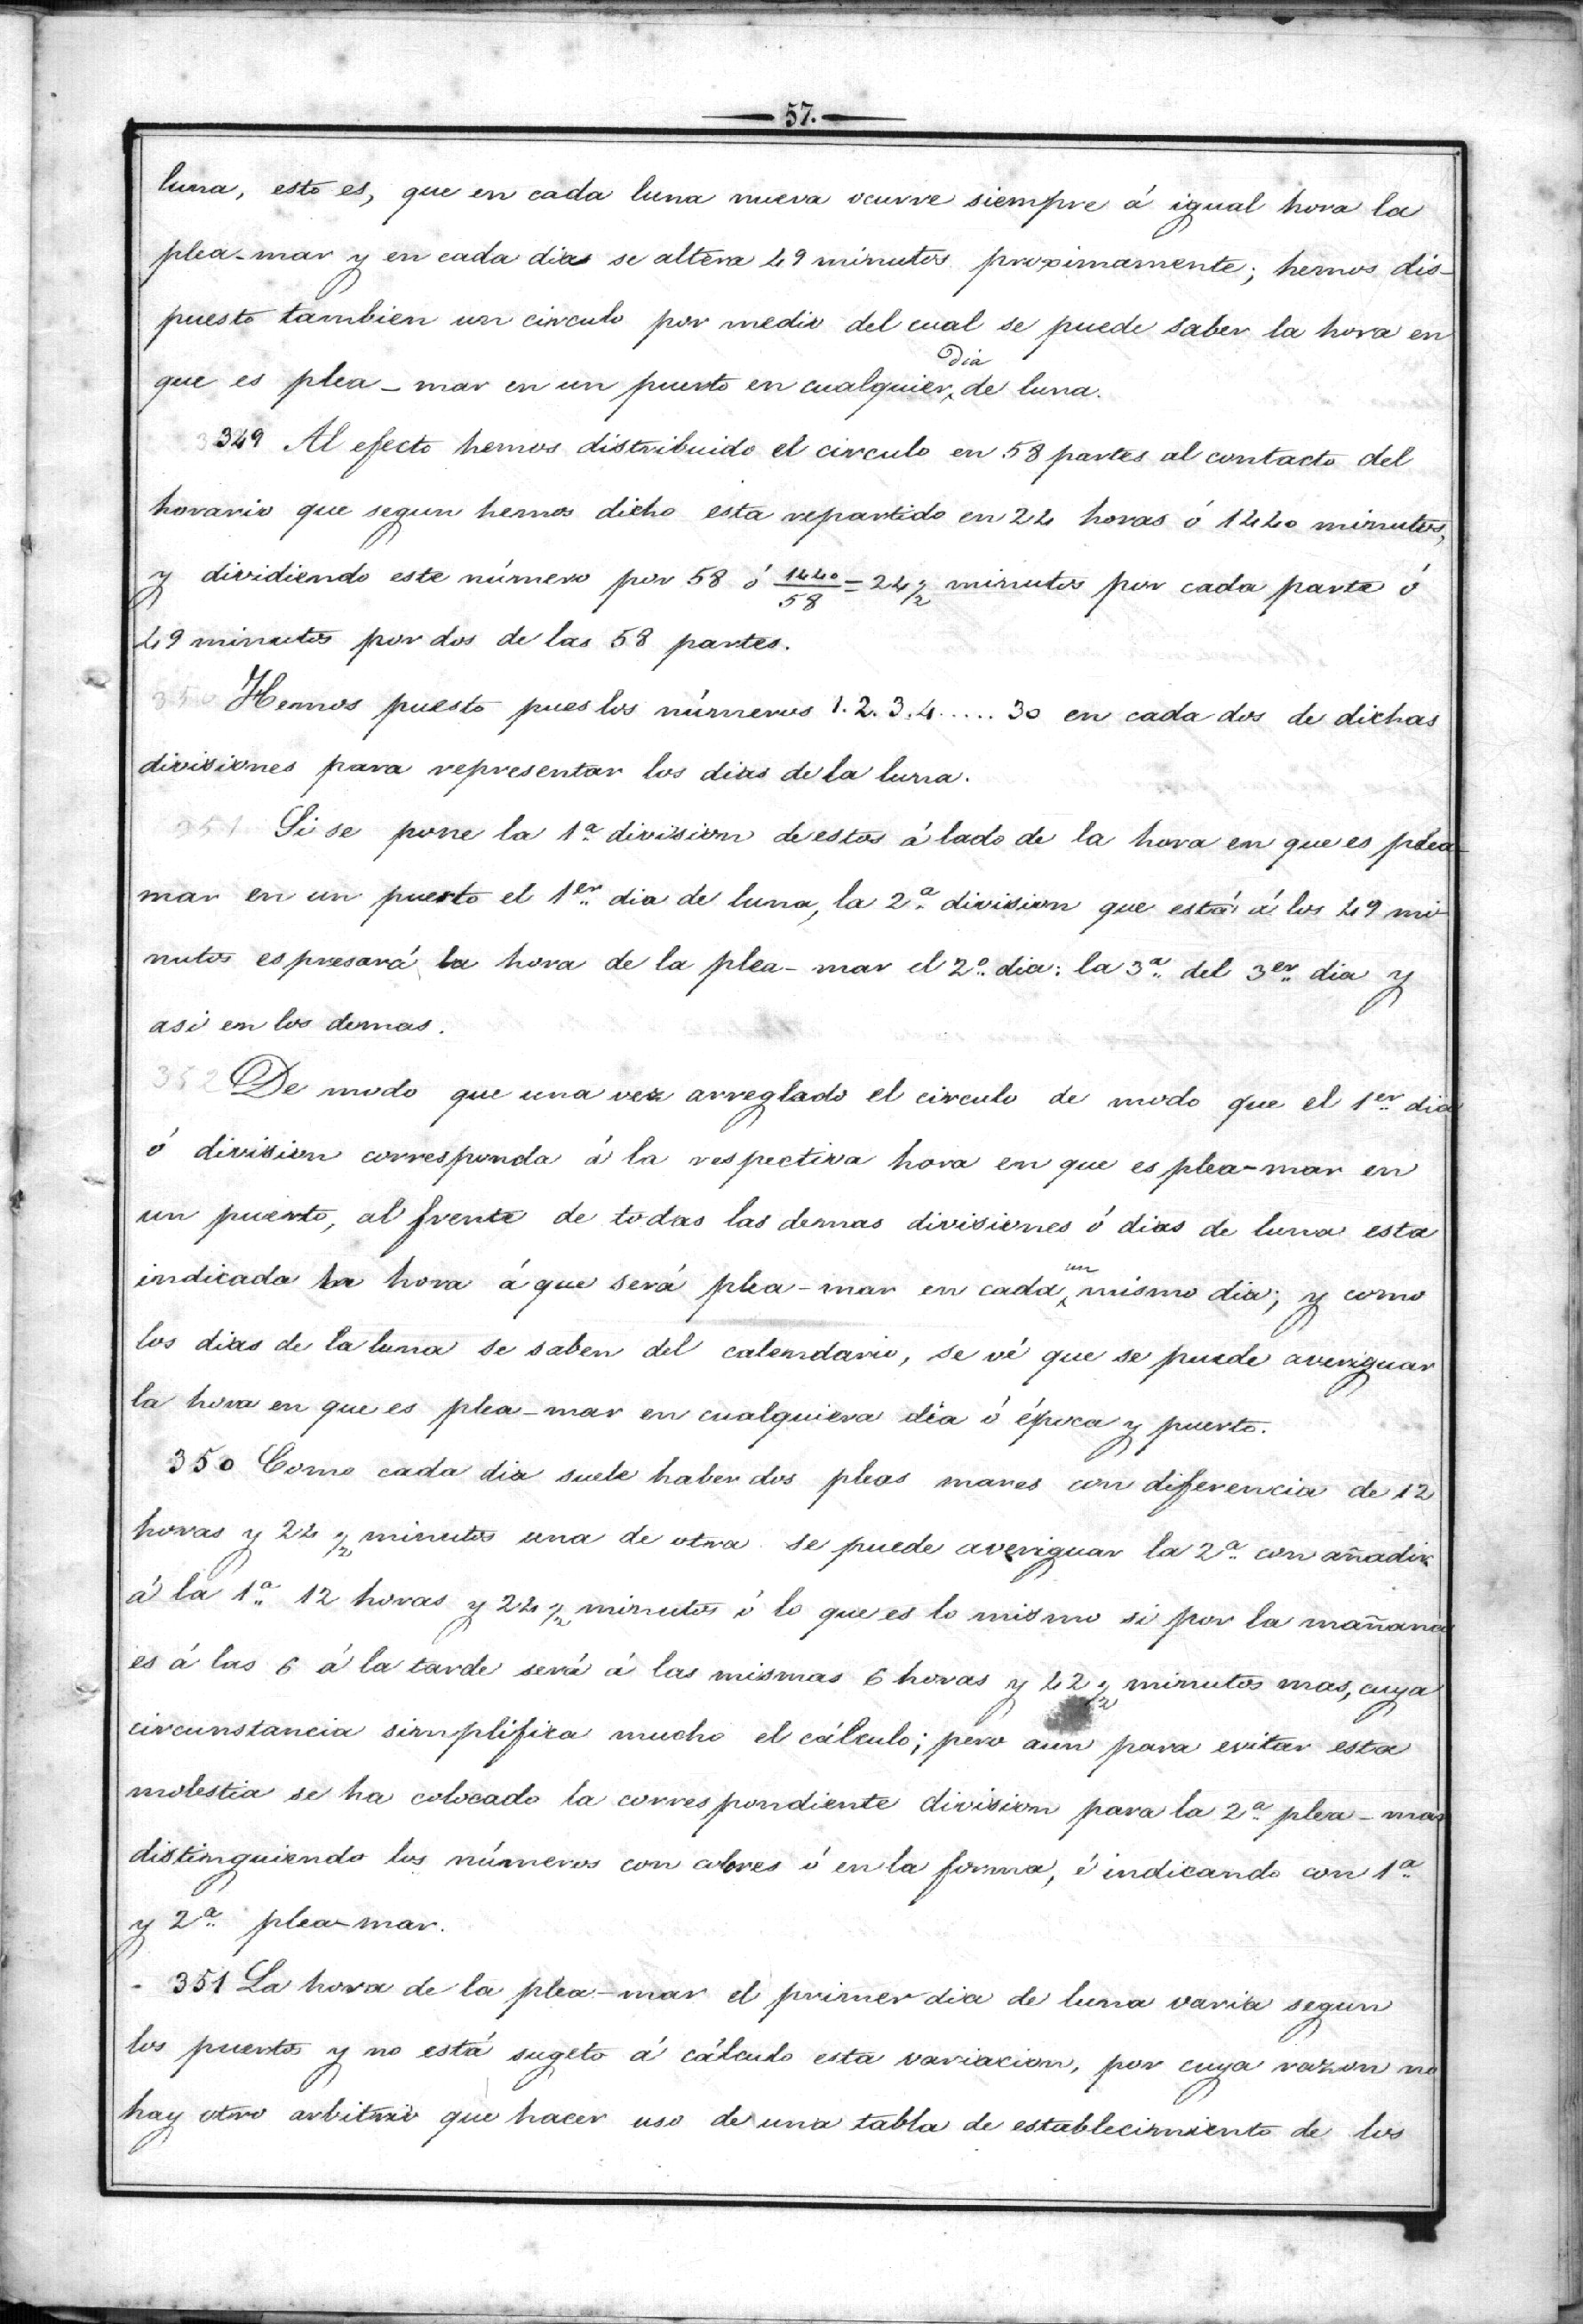 57.
luna, esto es, que en cada luna nueva ocurre siempre á igual hora la
plea-mar y en cada dias se altera 49 minutos proximamente; hemos dis-
puesto tambien un circulo por medio del cual se puede saber la hora en
que es plea-mar en un puerto en cualquier dia de luna.
349 Al efecto hemos distribuido el circulo en 58 partes al contacto del
horario que segun hemos dicho esta repartido en 24 horas ó 1440 minutos,
y dividiendo este número por 58 ó 1440/58 = 24 1/2 minutos por cada parte ó
49 minutos por dos de las 58 partes.
350 Hemos puesto pues los números 1. 2. 3. 4 ..... 30 en cada dos de dichas
divisiones para representar los dias de la luna.
351 Si se pone la 1ª division de estos á lado de la hora en que es plea-
mar en un puerto el 1er dia de luna, la 2ª division que está á los 49 mi-
nutos espresará la hora de la plea-mar el 2º dia: la 3ª del 3er dia y
asi en los demas.
352 De modo que una vez arreglado el circulo de modo que el 1er dia
ó division corresponda á la respectiva hora en que es plea-mar en
un puerto, al frente de todas las demas divisiones ó dias de luna esta
indicada la hora á que será plea-mar en cada un mismo dia; y como
los dias de la luna se saben del calendario, se vé que se puede averiguar
la hora en que es plea-mar en cualquiera dia ó época y puerto.
350 Como cada dia suele haber dos pleas mares con diferencia de 12
horas y 24 1/2 minutos una de otra se puede averiguar la 2ª con añadir
á la 1ª 12 horas y 24 1/2 minutos ó lo que es lo mismo si por la mañana
es á las 6 á la tarde será á las mismas 6 horas y 42 1/2 minutos mas, cuya
circunstancia simplifica mucho el cálculo; pero aun para evitar esta
molestia se ha colocado la correspondiente division para la 2ª plea-mar
distinguiendo los números con colores ó en la forma, é indicando con 1ª
y 2ª plea-mar.
- 351 La hora de la plea-mar el primer dia de luna varia segun
los puertos y no está sugeto á cálculo esta variacion, por cuya razon no
hay otro arbitrio que hacer uso de una tabla de establecimiento de los